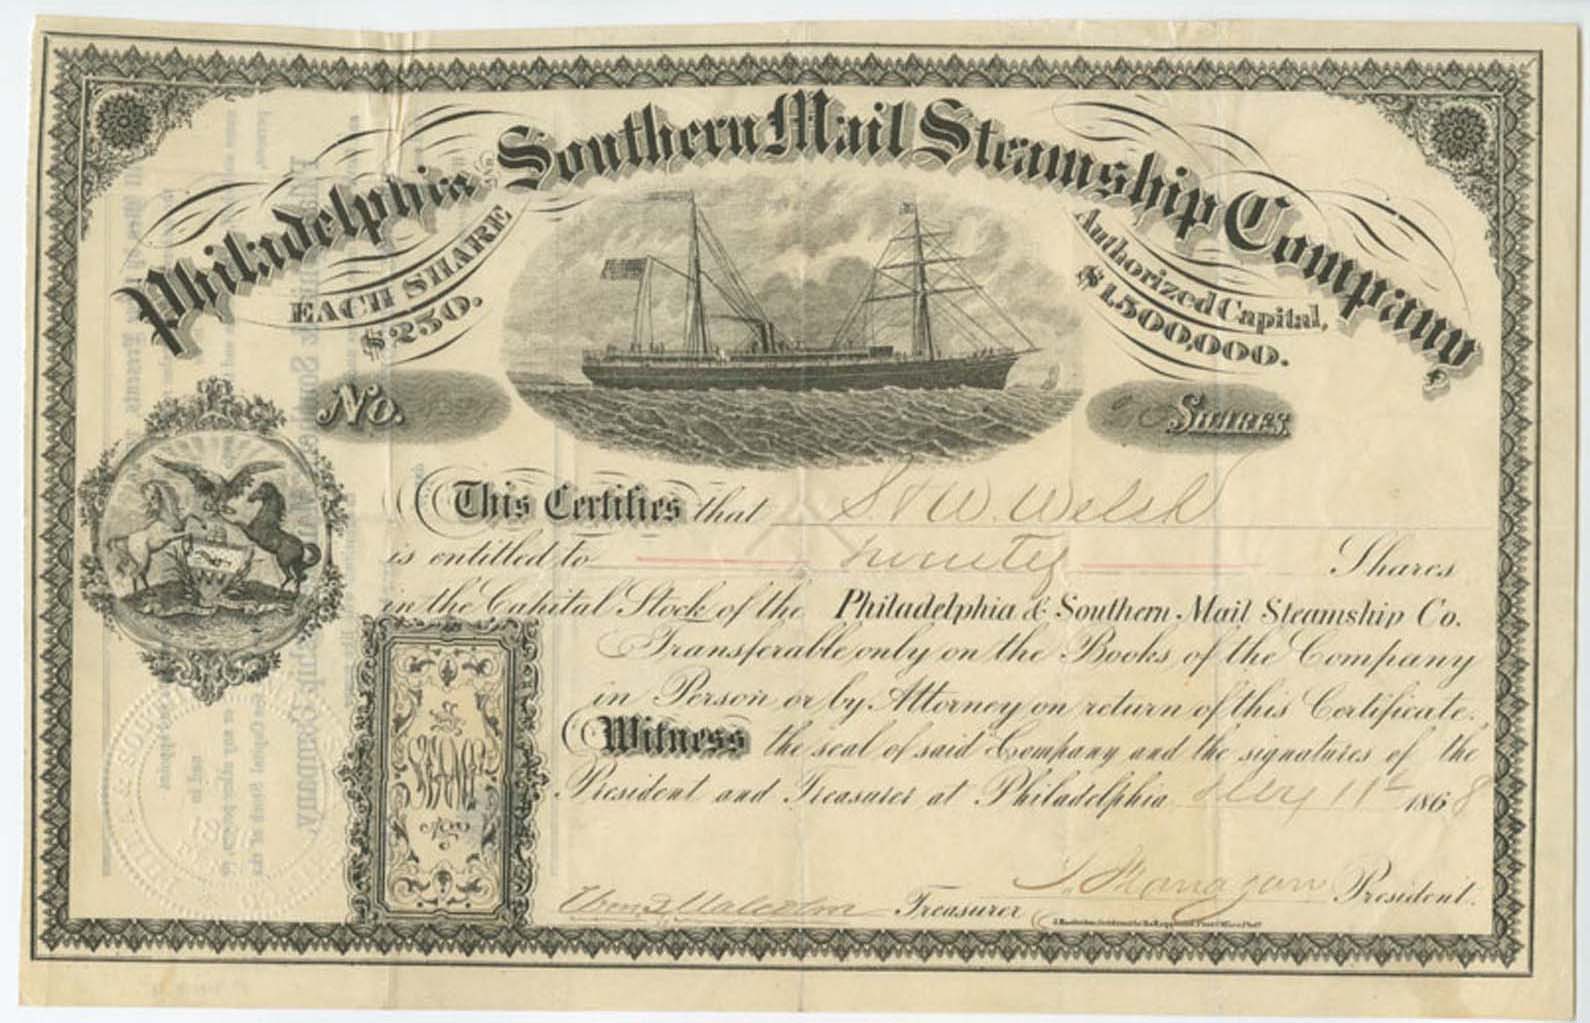 Philadelphia & Southern Mail Steamship Company,
EACH SHARE
$250.
Authorized Capital,
$1,500,000.
No.
90 SHARES.
This Certifies that S. & W. Welsh
is entitled to ninety Shares
in the Capital Stock of the Philadelphia & Southern Mail Steamship Co.
Transferable only on the Books of the Company
in Person or by Attorney on return of this Certificate.
Witness the seal of said Company and the signatures of the
President and Treasurer at Philadelphia May 11th 1868
Treasurer
President.